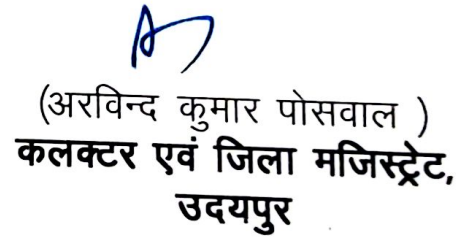 (अरविन्द कुमार पोसवाल )
कलक्टर एवं जिला मजिस्ट्रेट,
उदयपुर